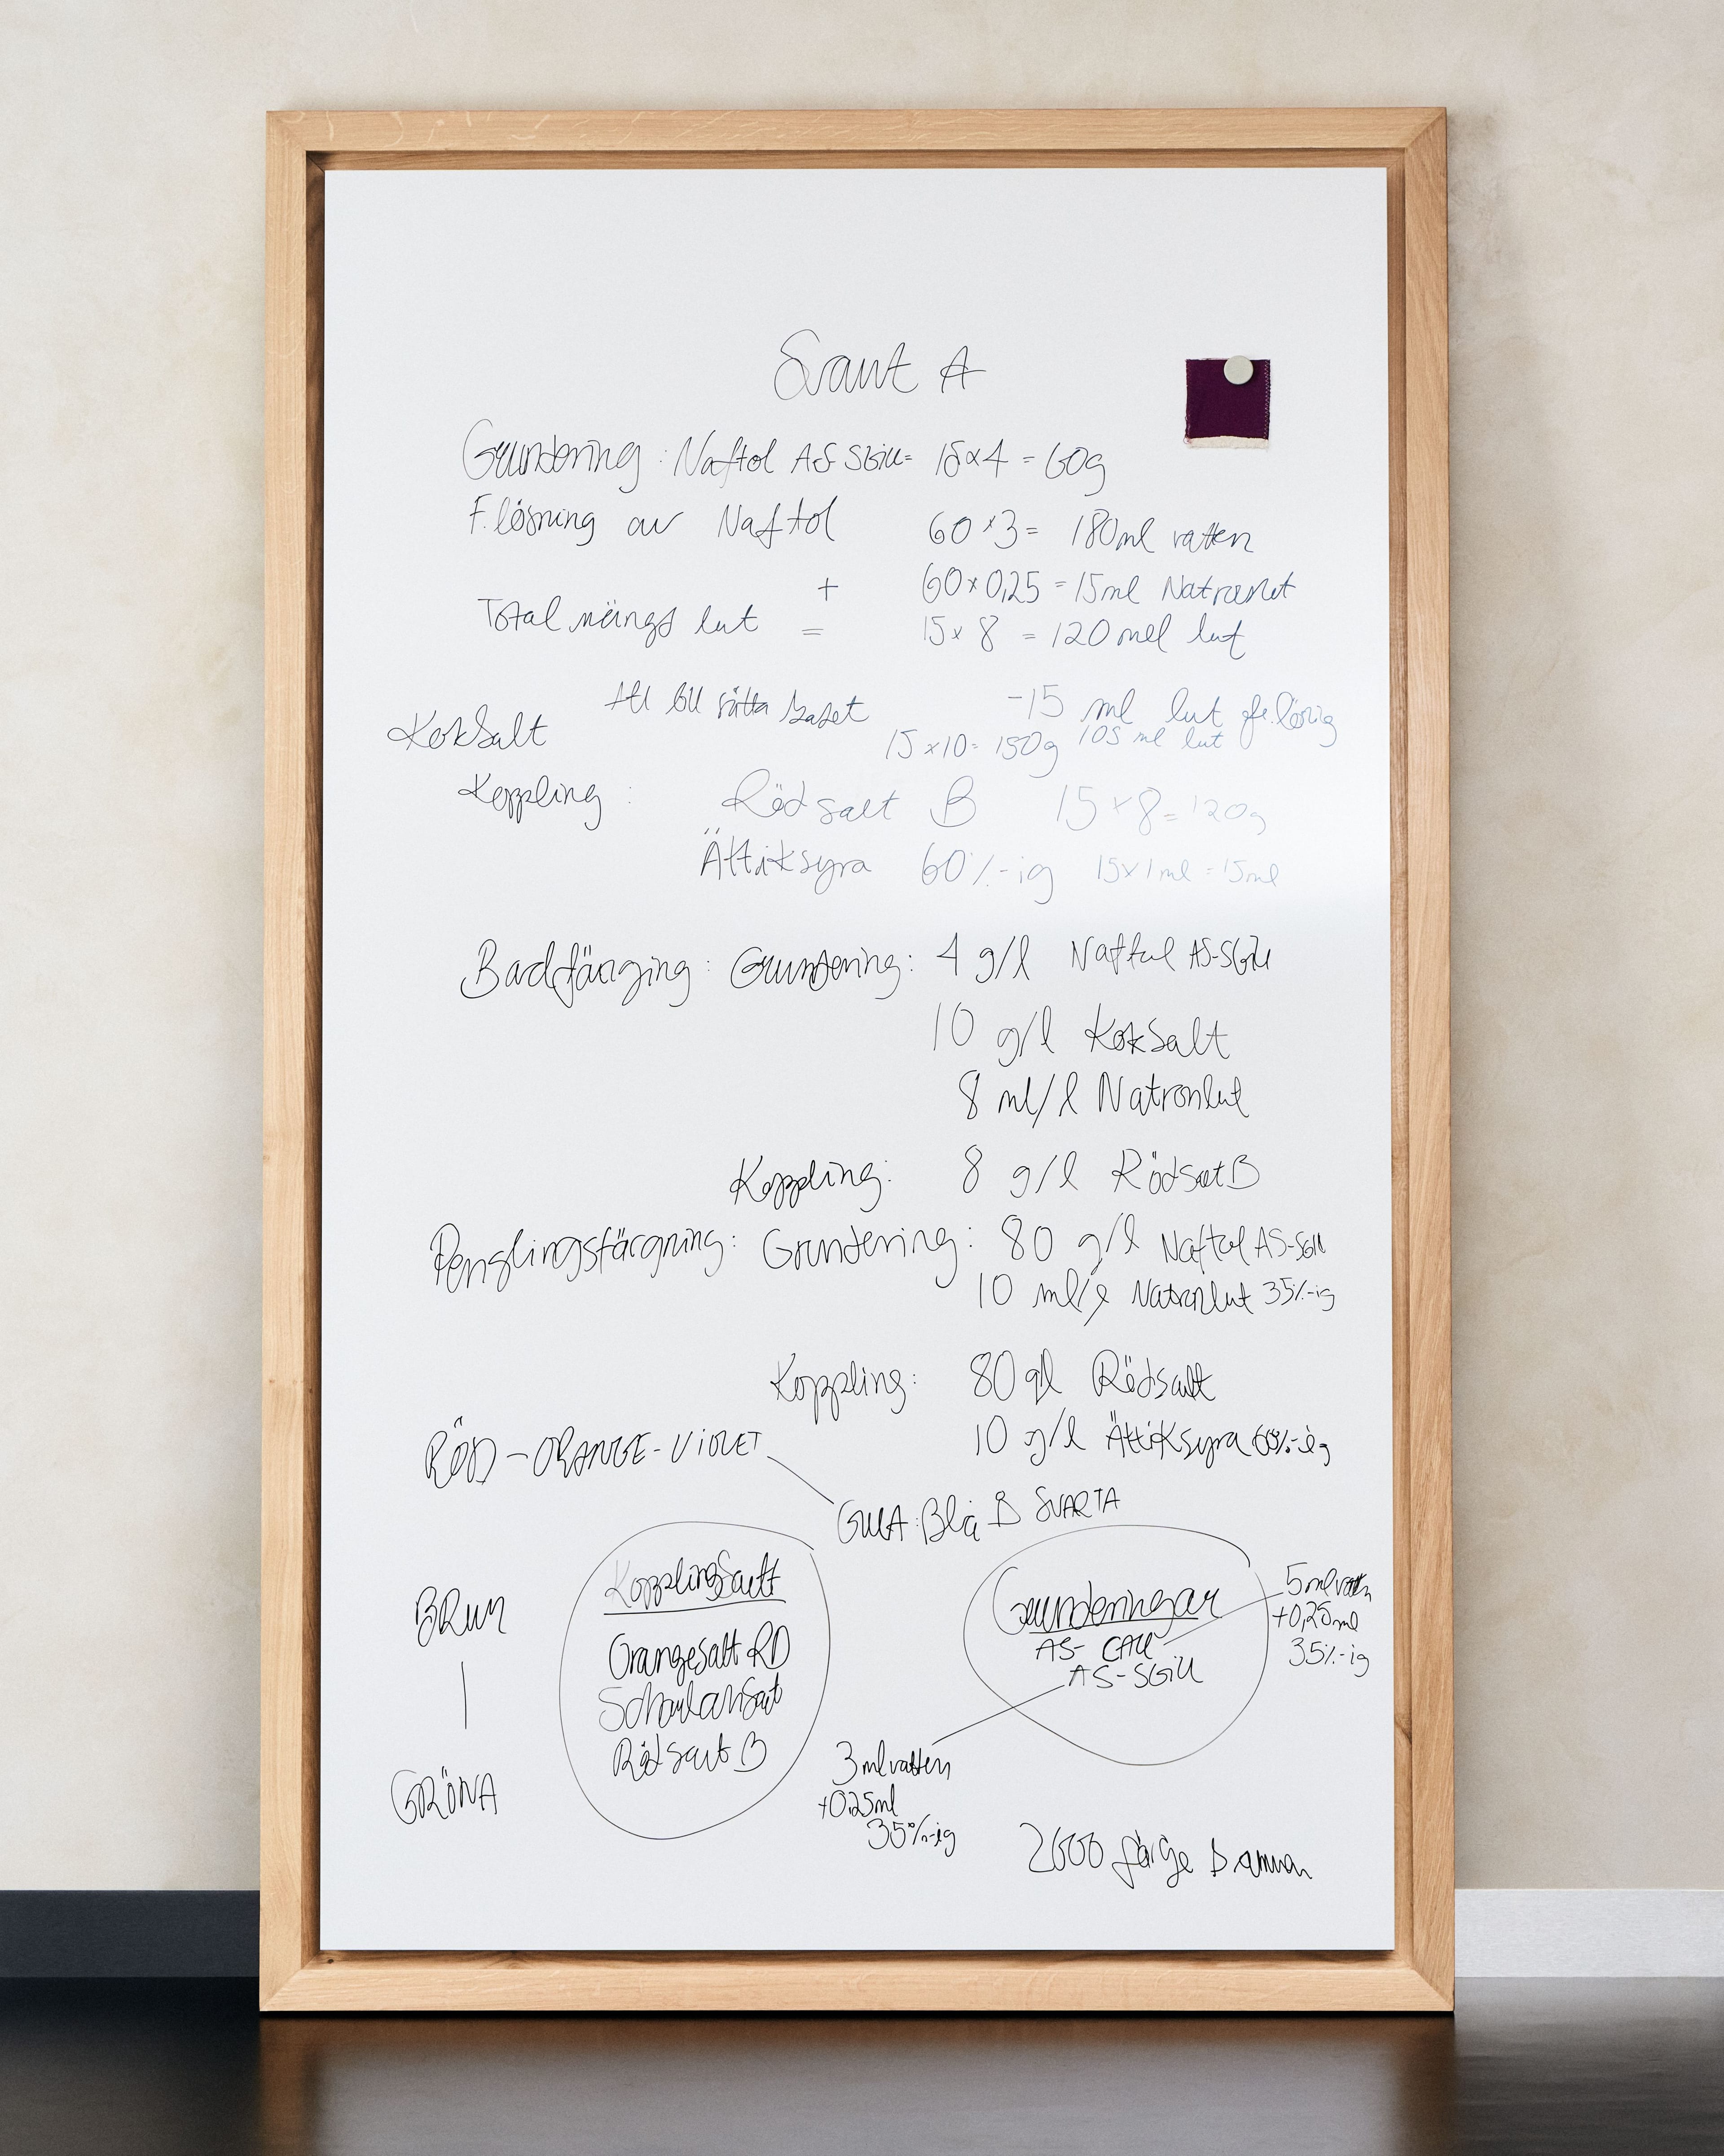 Svant A
Grundering: Naftol AS SGiU= 15x4 = 60g
F.lösning av Naftol 60x3= 180ml vatten
+ 60x0,25 = 15ml Natronlut
Total mängd lut = 15x8 = 120 ml lut
Att till sätta badet -15 ml lut fr.lösnig
105 ml lut
Koksalt 15x10= 150g
Koppling: Rödsalt B 15x8= 120g
Ättiksyra 60%-ig 15x1ml = 15ml
Badfärging: Grundering: 4 g/l Naftol AS-SGiU
10 g/l Koksalt
8 ml/l Natronlut
Koppling: 8 g/l Rödsalt B
Penslingsfärgning: Grundering: 80 g/l Naftol AS-SGiU
10 ml/l Natronlut 35%-ig
Koppling: 80 g/l Rödsalt
10 g/l Ättiksyra 60%-ig
RÖD - ORANGE - ViOLET
GULA: Blå B SVARTA
BRUN
GRÖNA
Kopplingsalt
Orangesalt RD
Scharlansalt
Rödsalt B
Grunderingar
AS- CAU
AS-SGiU
5 ml vatten
+0,25 ml
35%-ig
3 ml vatten
+0,25ml
35%-ig
2600 färge